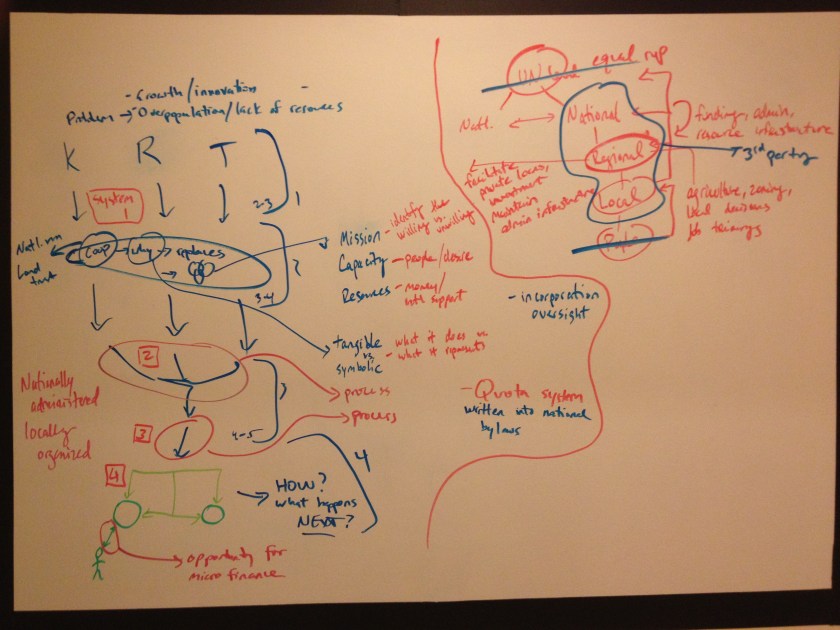 - Growth/innovation
Problem → - Overpopulation/lack of resources
K R T
System
1
2-3
1
Natl. run
Land
trust
Coop → why → replaces
3-4
Mission - identify the
willing vs. unwilling
Capacity - people/desire
Resources - money/
support
tangible
vs.
symbolic
- what it does vs
- what it represents
2
process
process
Nationally
administered
locally
organized
3
4-5
4
4
HOW?
what happens
NEXT?
opportunity for
micro finance
UN equal rep
Natl.
National
Regional
Local
Public
funding, admin,
resource infrastructure
3rd party
facilitate
private locus,
investment
maintain
admin infrastructure
agriculture, zoning,
local decisions
job trainings
- incorporation
oversight
- Quota system
written into national
bylaws